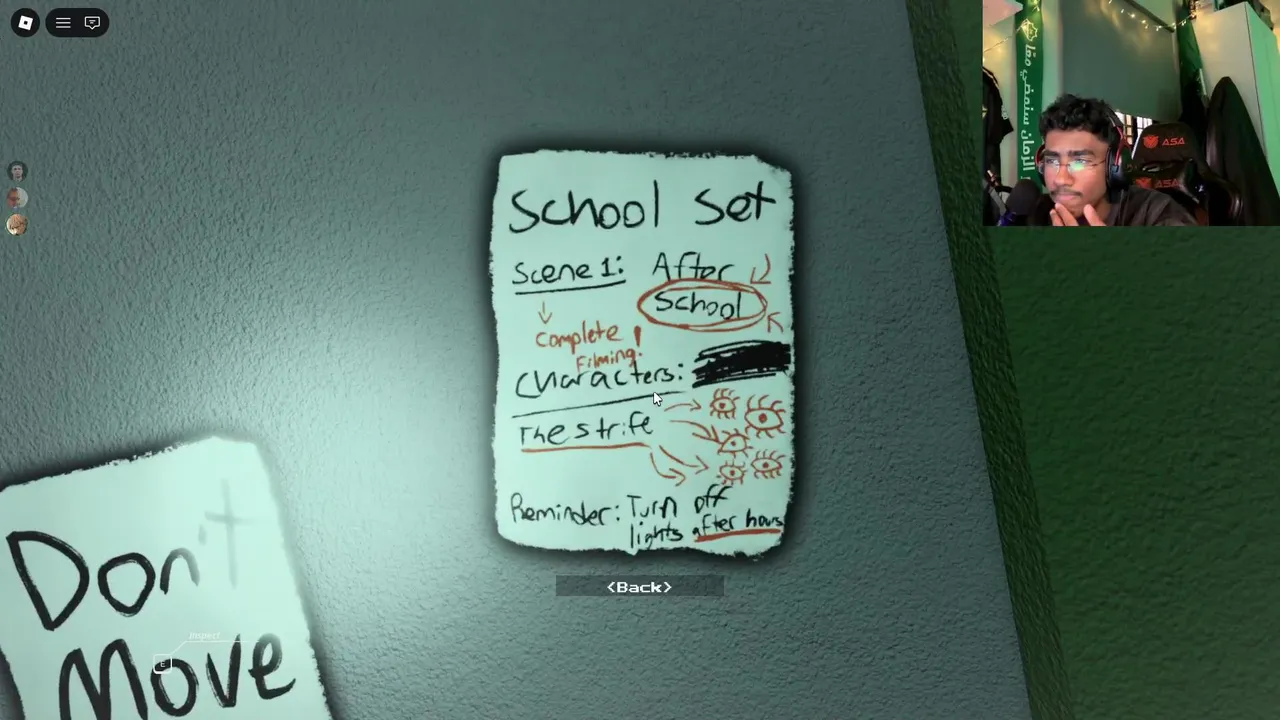 School Set
Scene 1: After
School
Complete
Filming!
Characters:
The strife
Reminder: Turn off
lights after hours
<Back>
Don't
Move
Inspect
E
ASA
ASA
الزمان سنمضي معا